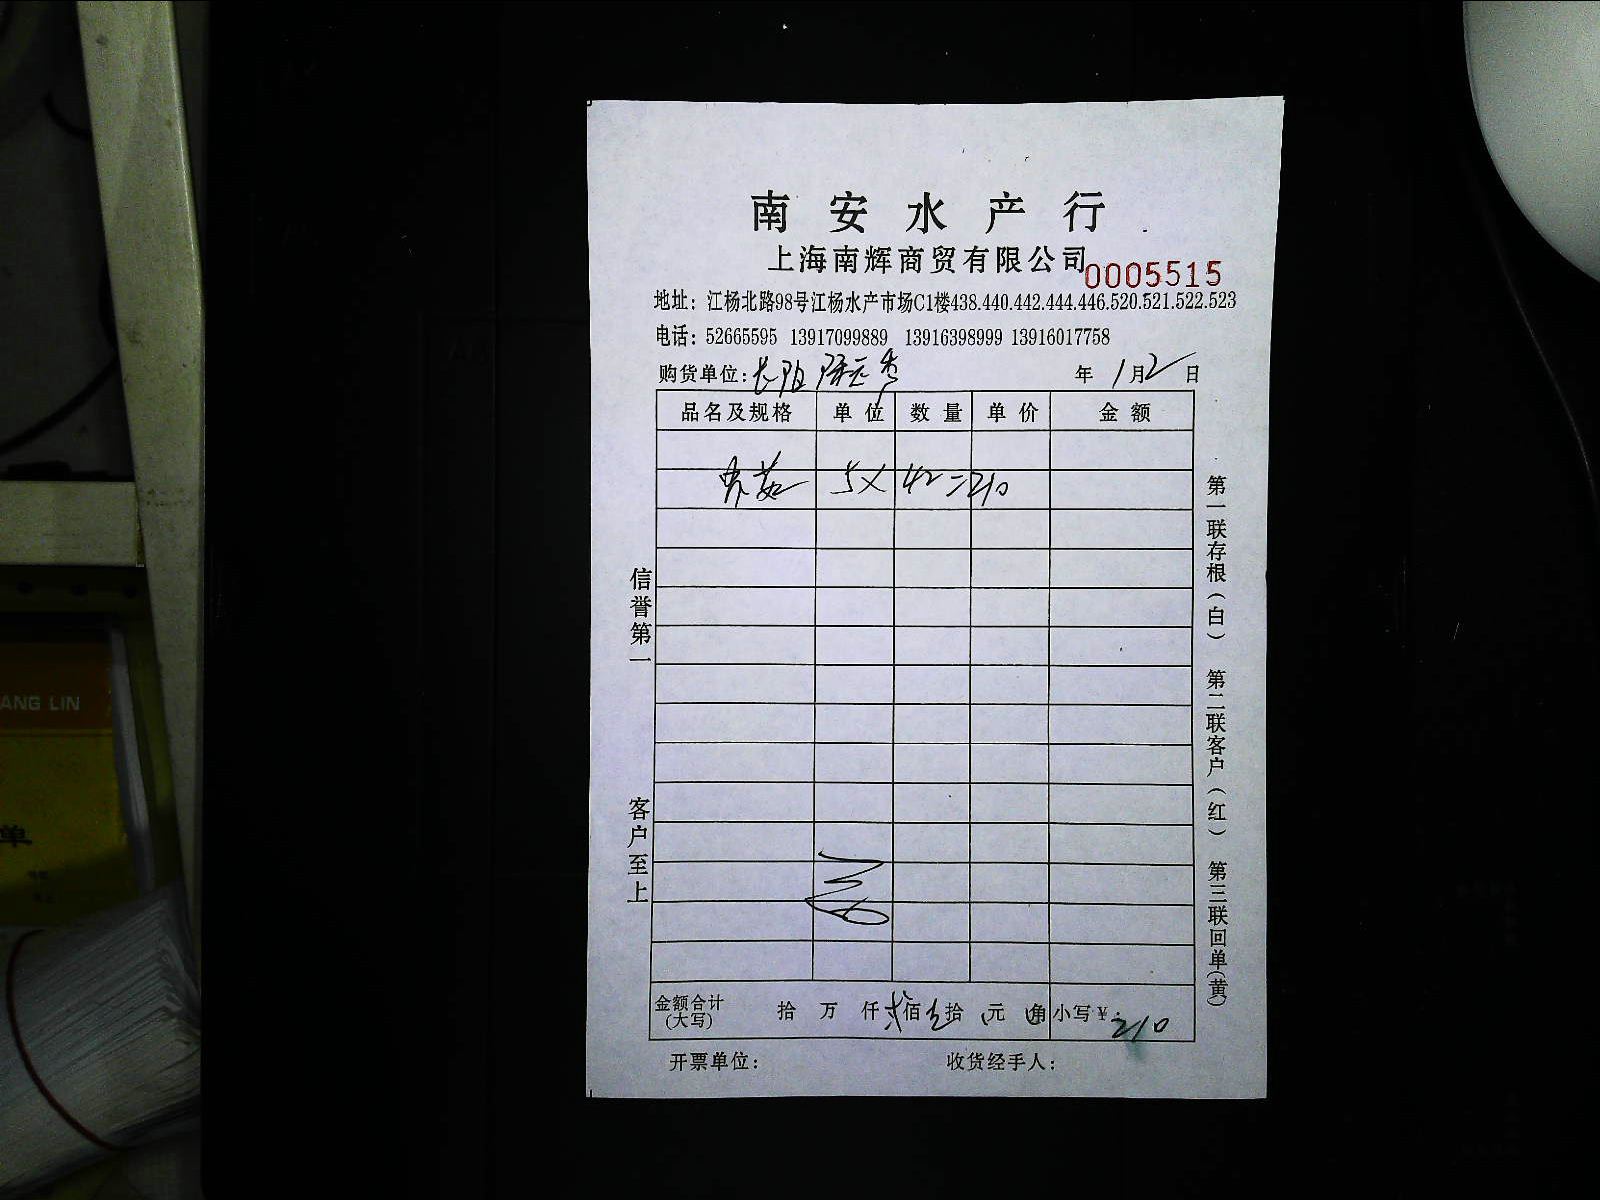 南安水产行
上海南辉商贸有限公司 0005515
地址：江杨北路98号江杨水产市场C1楼438.440.442.444.446.520.521.522.523
电话：52665595 13917099889 13916398999 13916017758
购货单位：长阳 年 1月2日
品名及规格 单位 数量 单价 金额
5×42=210
信誉第一
客户至上
第一联存根（白） 第二联客户（红） 第三联回单（黄）
金额合计（大写） 拾 万 仟 贰佰 壹拾 元 角 小写￥：210
开票单位： 收货经手人：
ANG LIN
单